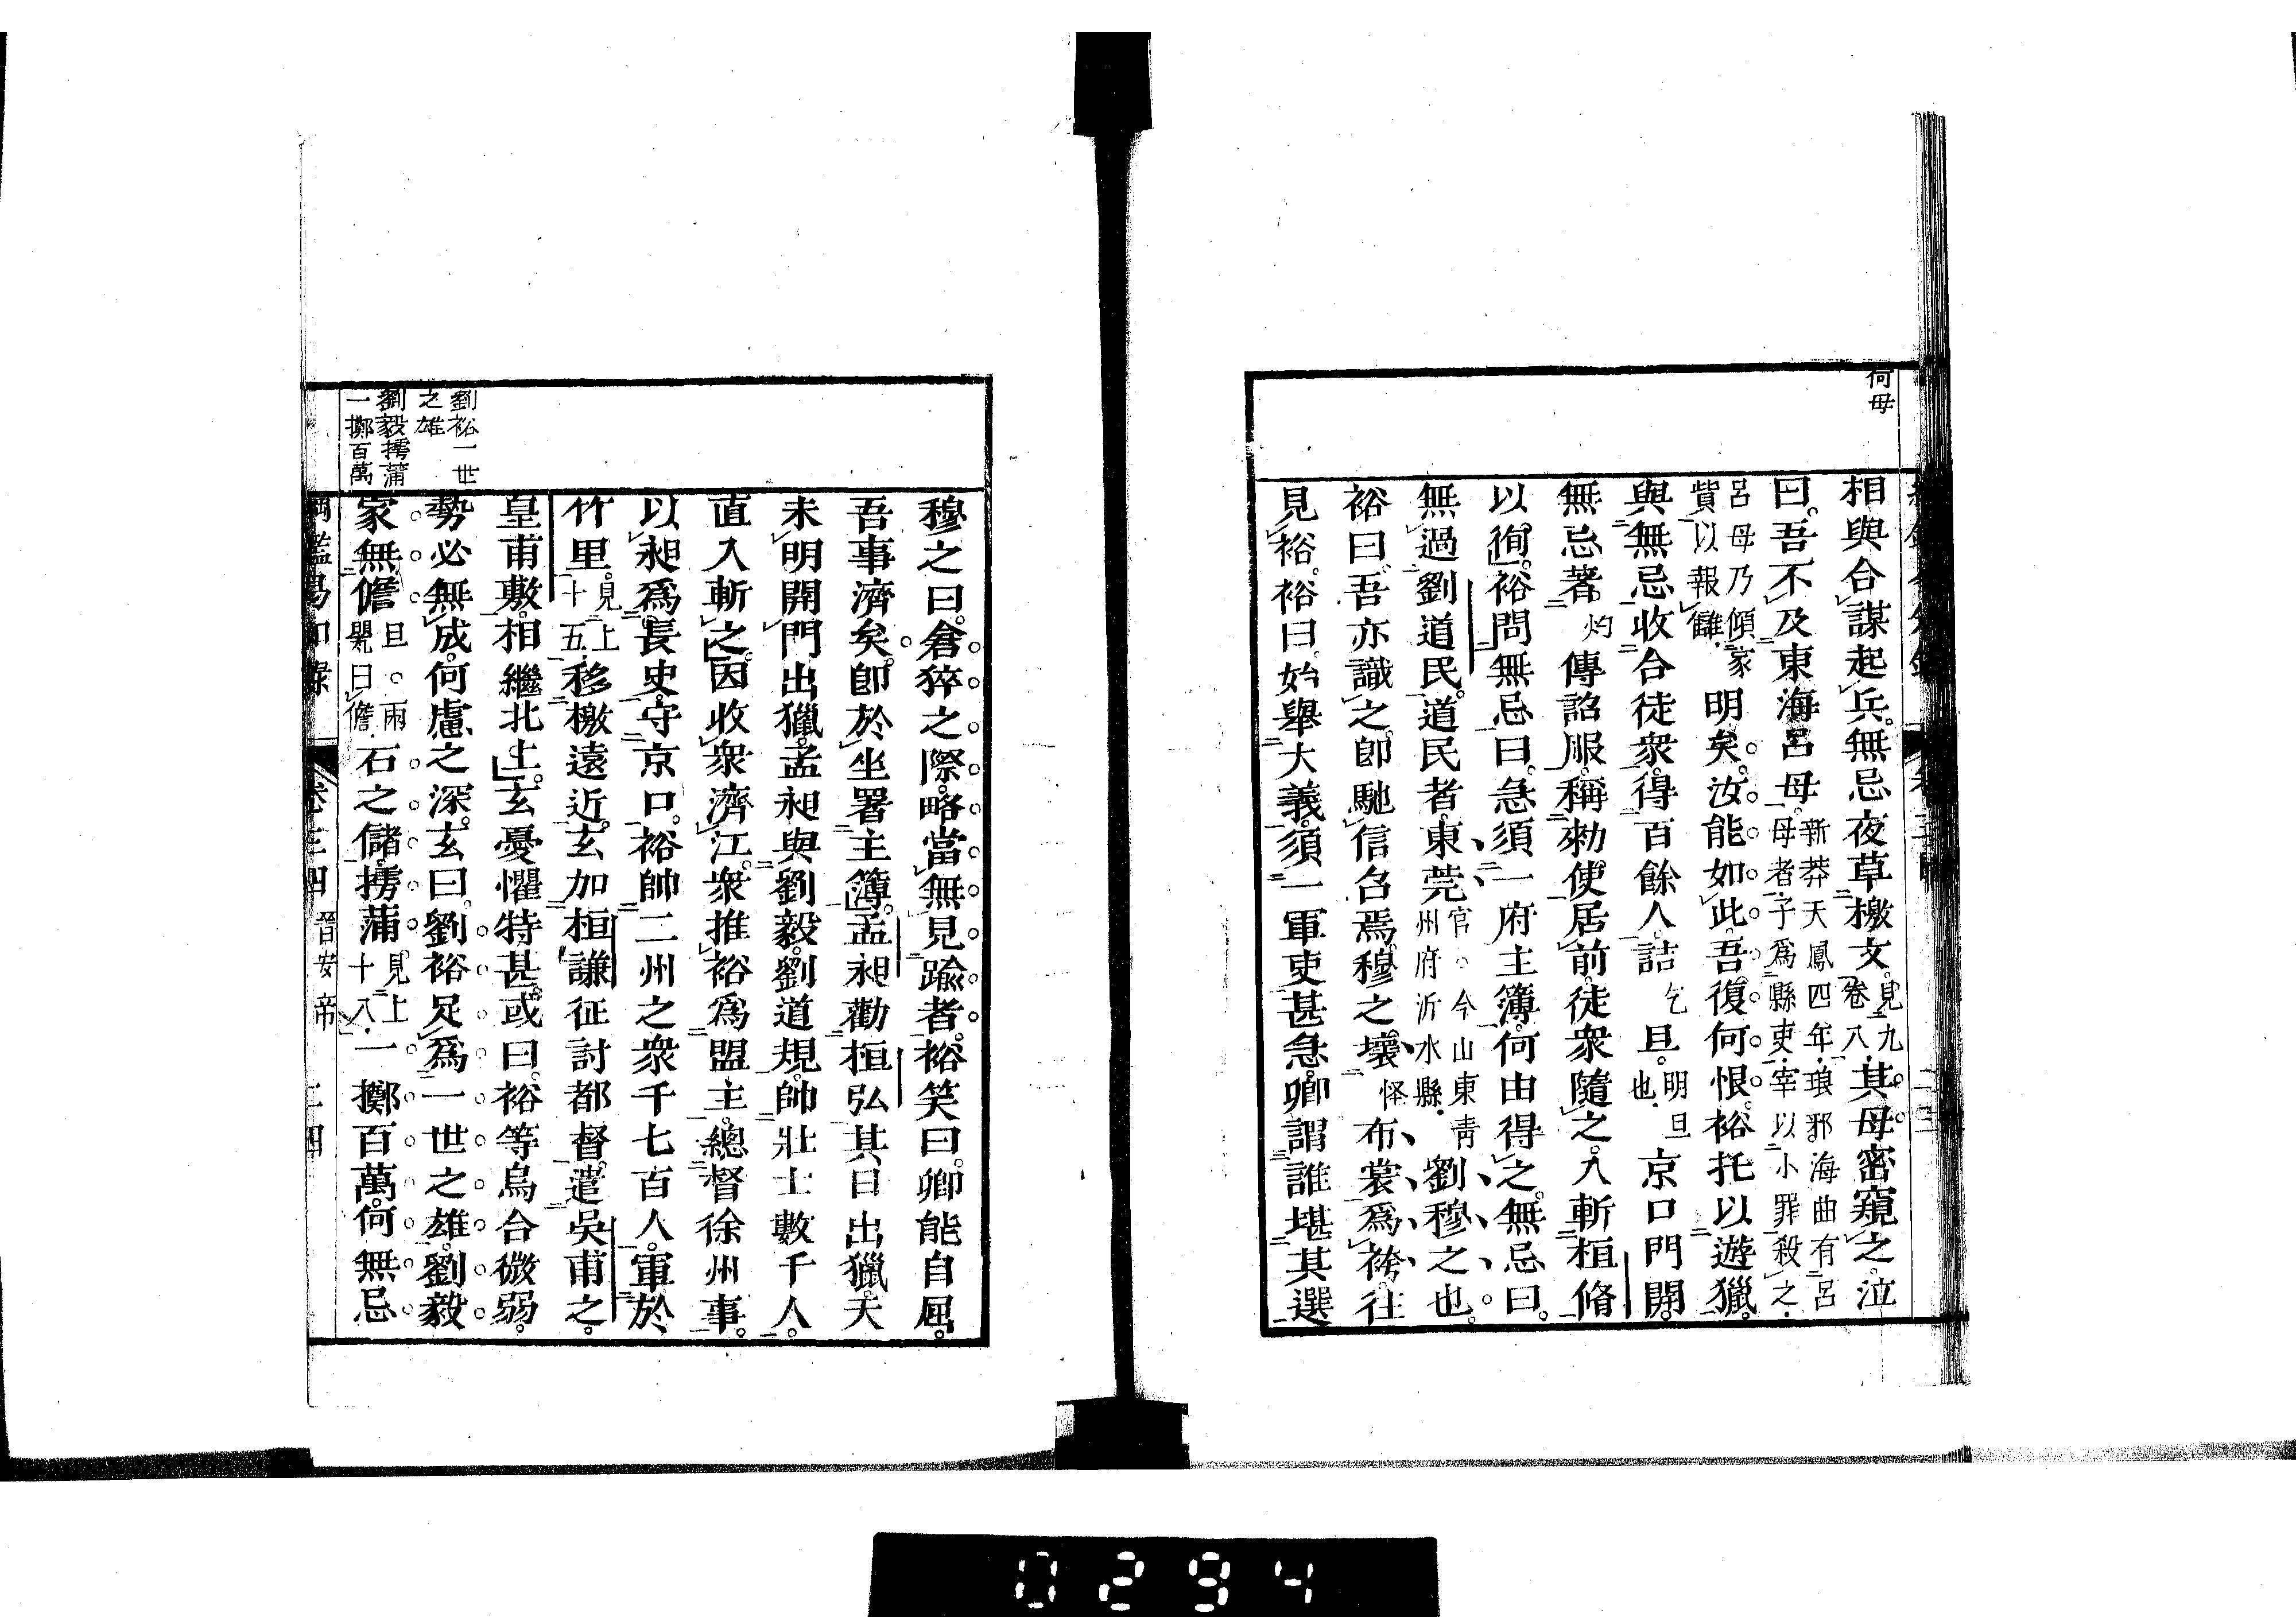 何母
相與合謀起兵。無忌夜草檄文。見九卷八。其母密窺之。泣
曰。吾不及東海呂母。新莽天鳳四年。琅邪海曲有呂母者。子爲縣吏。宰以小罪殺之。
呂母乃傾家貲以報讎。明矣。汝能如此。吾復何恨。裕托以遊獵。
與無忌收合徒衆。得百餘人。詰乞旦。明旦也。京口門開。
無忌著灼傳詔服。稱勑使居前。徒衆隨之。入斬桓脩
以徇。裕問無忌曰。急須一府主簿。何由得之。無忌曰。
無過劉道民。道民者。東莞官。今山東青州府沂水縣。劉穆之也。
裕曰。吾亦識之。卽馳信召焉。穆之。壞怪布裳爲袴。往
見裕。裕曰。始舉大義。須一軍吏甚急。卿謂誰堪其選
穆之曰。倉猝之際。略當無見踰者。裕笑曰。卿能自屈。
吾事濟矣。卽於坐署主簿。孟昶勸桓弘其日出獵。天
未明開門出獵。孟昶與劉毅。劉道規。帥壯士數千人。
直入斬之。因收衆濟江。衆推裕爲盟主。總督徐州事。
以昶爲長史。守京口。裕帥二州之衆千七百人。軍於
竹里。見上十五。移檄遠近。玄加桓謙征討都督。遣吳甫之。
皇甫敷。相繼北上。玄憂懼特甚。或曰。裕等烏合微弱。
勢必無成。何慮之深。玄曰。劉裕足爲一世之雄。劉毅
家無儋旦。兩甖曰儋。石之儲。摴蒲見上十八。一擲百萬。何無忌
劉裕一世
之雄
劉毅摴蒲
一擲百萬
綱鑑易知錄 卷三四 晉安帝 二四
0294